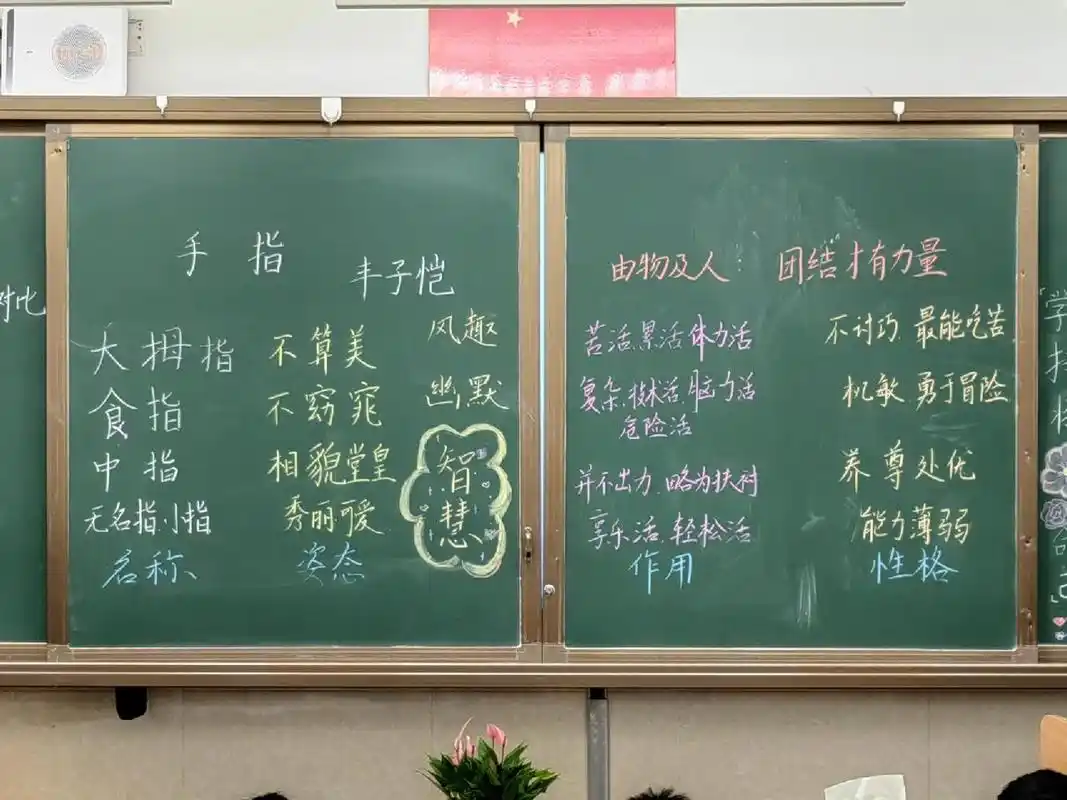 对比
手 指
丰子恺
大拇指 不算美
风趣
食指 不窈窕
幽默
中指 相貌堂皇
智慧
无名指.小指 秀丽可爱
名称 姿态
由物及人 团结才有力量
苦活.累活.体力活 不讨巧 最能吃苦
复杂.技术活.脑力活 机敏 勇于冒险
危险活
并不出力.略为扶衬 养尊处优
享乐活.轻松活 能力薄弱
作用 性格